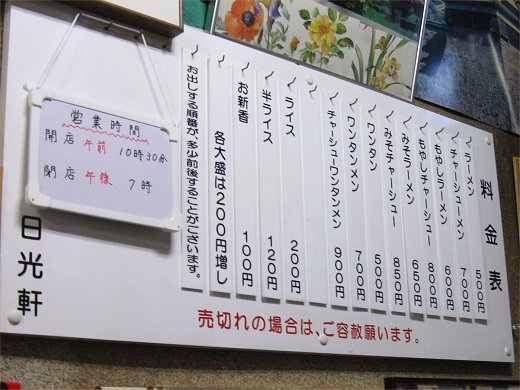 料金表
ラーメン 500円
チャーシューメン 700円
もやしラーメン 600円
もやしチャーシュー 800円
みそラーメン 650円
みそチャーシュー 850円
ワンタン 500円
ワンタンメン 700円
チャーシューワンタンメン 900円
ライス 200円
半ライス 120円
お新香 100円
各大盛は200円増し
お出しする順番が、多少前後することがございます。
売切れの場合は、ご容赦願います。
営業時間
開店 午前 10時30分
閉店 午後 7時
日光軒